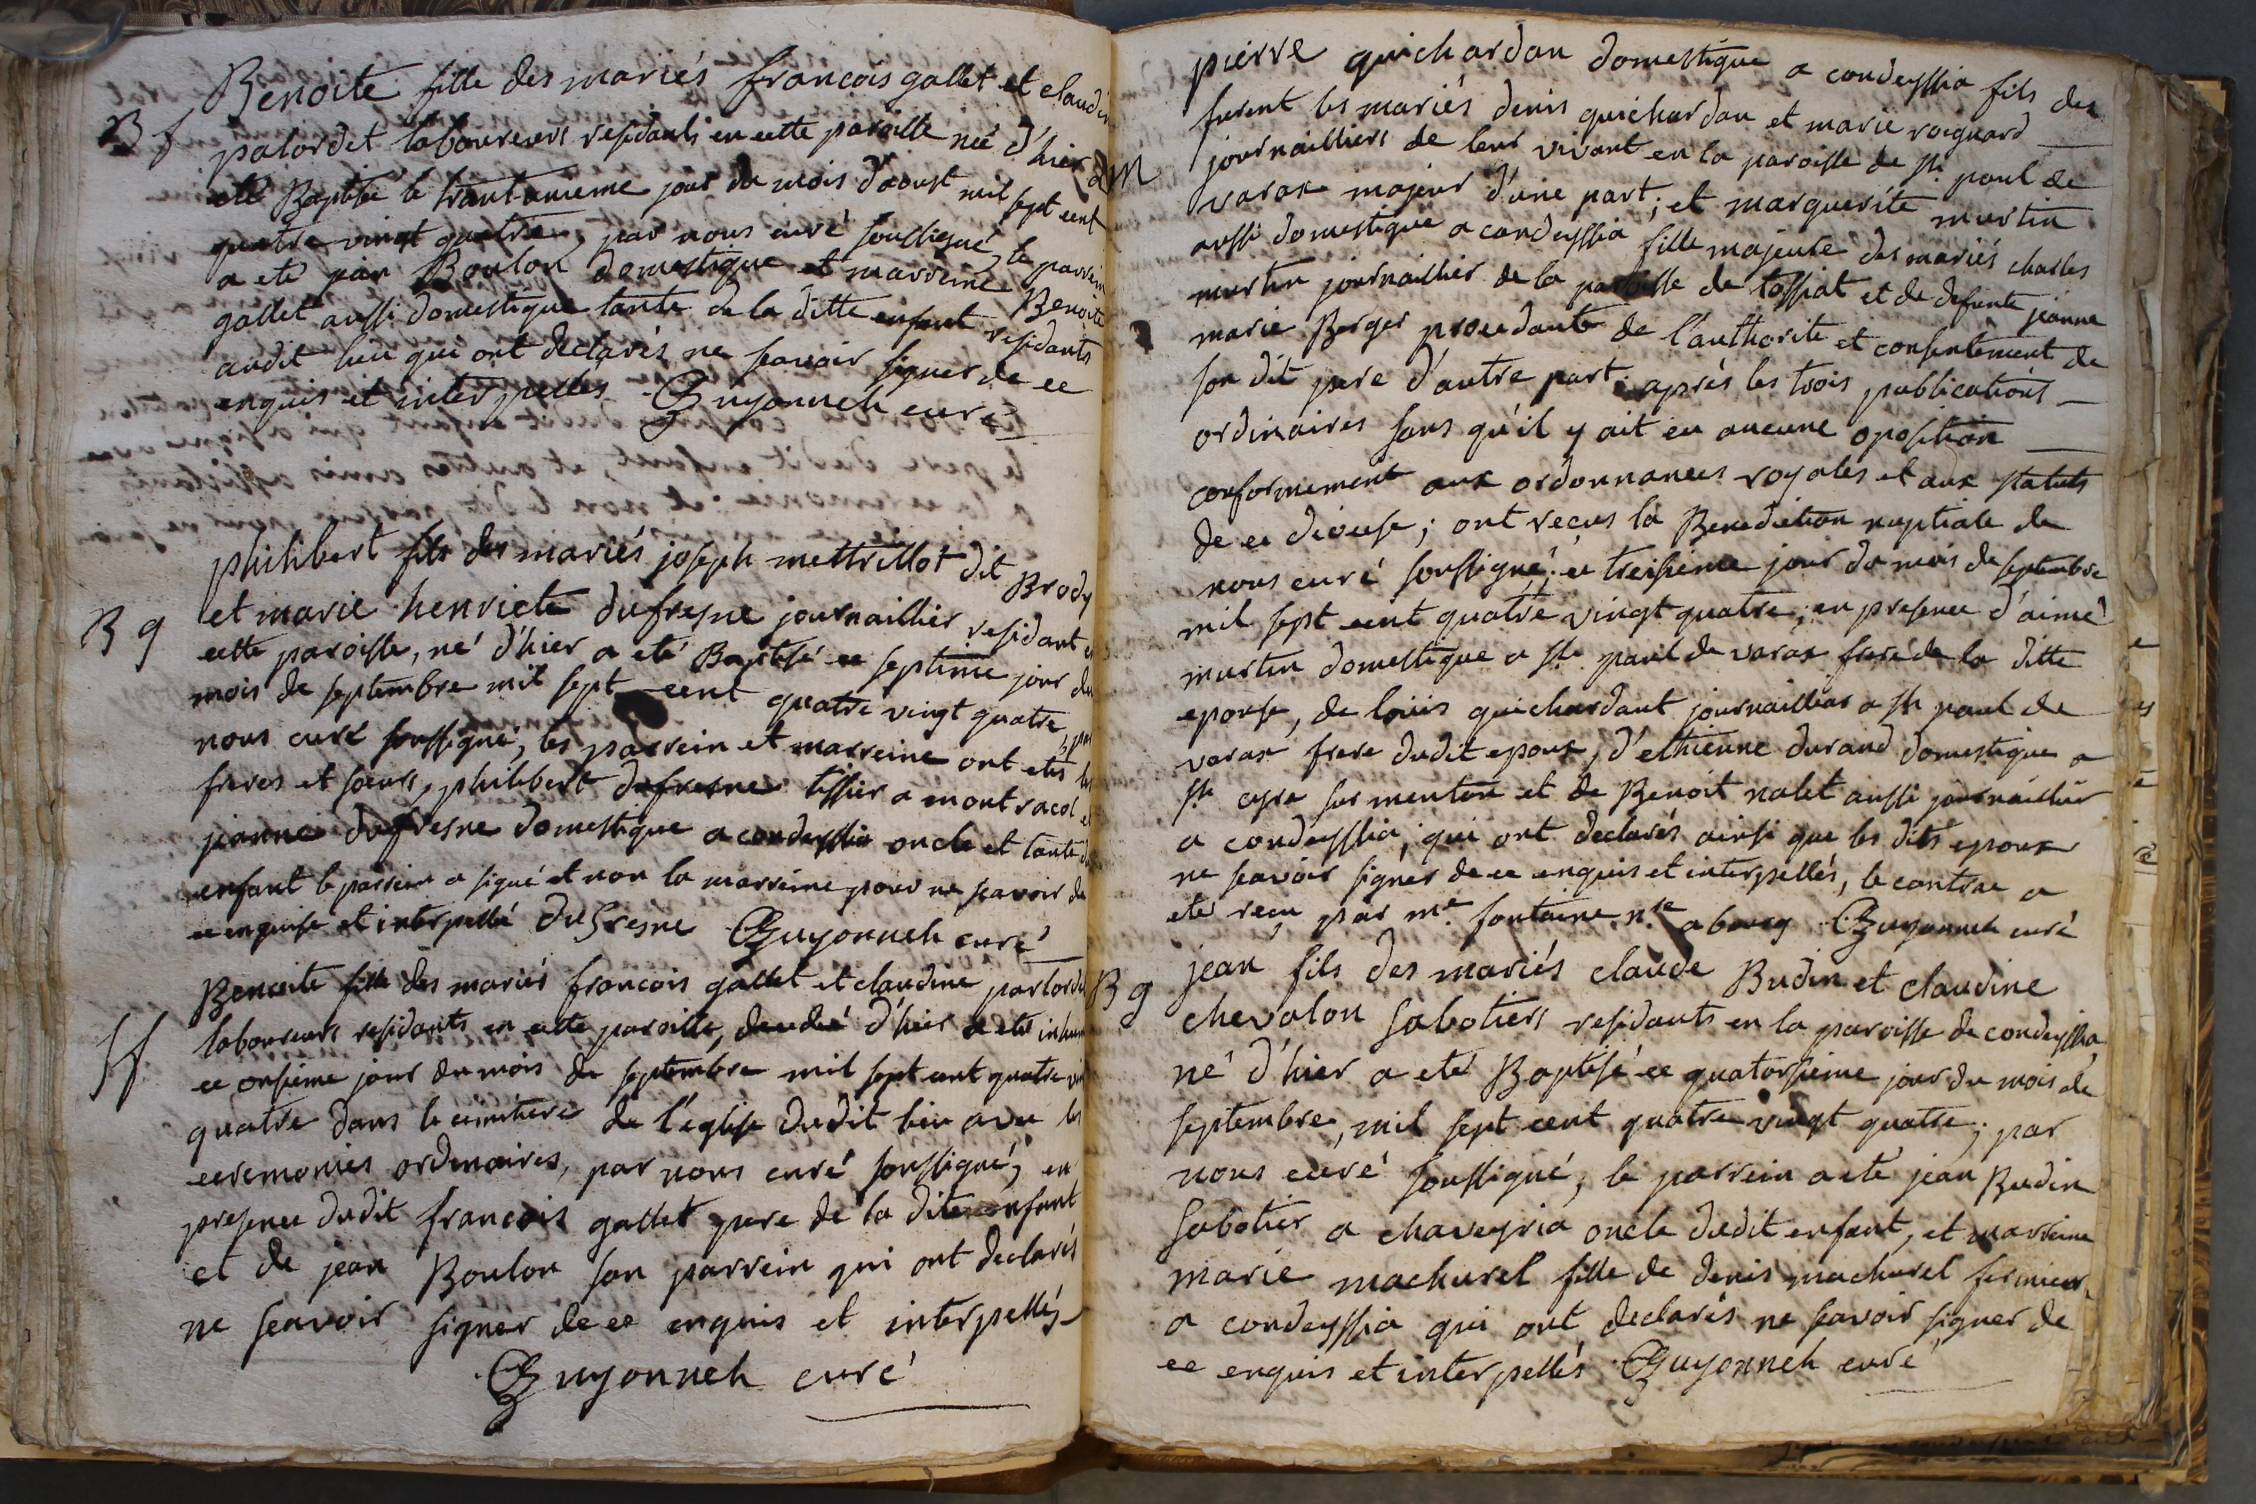 Benoite fille des mariés francois gallet et claudin
B f
palordet laboureurs residants en cette paroisse née d'hier a
eté Baptisée le trantunieme jour du mois d'aoust mil sept cent
quatre vingt quatre, par nous curé soussigné, le parrein
a eté jean Boulon domestique et marreine Benoite
gallet aussi domestique tante de la ditte enfant residants
audit lieu qui ont declarés ne scavoir signer de ce
enquis et interpellés Guyonneh curé
philibert fils des mariés joseph mettrillot dit Brody
B g
et marie henriete dufresne journaillier residant en
cette paroisse, né d'hier a eté Baptisé ce septime jour du
mois de septembre mil sept cent quatre vingt quatre, par
nous curé soussigné, les parrein et marreine ont etés les
freres et soeurs, philibert dufresne tissier a montracol et
jeanne dufresne domestique a condeyssia oncle et tante d
enfant le parrein a signé et non la marreine pour ne scavoir de
ce enquise et interpellé Dufresne Guyonneh curé
Benoite fille des mariés francois gallet et claudine parlordet
S f
laboureurs residants en cette paroisse, decedée d'hier a eté inhum
ce onsieme jour du mois de septembre mil sept cent quatre vin
quatre dans le cimitiere de l'eglise dudit lieu avec les
ceremonies ordinaires, par nous curé soussigné, en
presence dudit francois gallet pere de la dite enfant
et de jean Boulon son parrein qui ont declarés
ne scavoir signer de ce enquis et interpellés
Guyonneh curé
pierre guichardan domestique a condeyssia fils des
furent les mariés denis guichardan et marie roignard
M
journailliers de leur vivant en la paroisse de st paul de
varax majeur d'une part; et marguerite murtin
aussi domestique a condeyssia fille majeure des mariés charles
murtin journaillier de la paroisse de tossiat et de defunte jeanne
marie Berger procedante de l'authorité et consentement de
son dit pere d'autre part; aprés les trois publications
ordinaires sans qu'il y ait eu aucune oposition
conformement aux ordonnances royales et aux statuts
de ce diocese; ont recus la Benediction nuptiale de
nous curé soussigné; ce treisieme jour du mois de septembre
mil sept cent quatre vingt quatre; en presence d'aimé
murtin domestique a st paul de varax frere de la ditte
epouse, de loüis guichardant journaillier a st paul de
varax frere dudit epoux, d'ethienne durand domestique a
st cyre sur menton et de Benoit nalet aussi journaillier
a condeyssia; qui ont declarés ainsi que les dits epoux
ne scavoir signer de ce enquis et interpellés, le contrac a
eté reçu par me fontaine nre a bourg Guyonneh curé
jean fils des mariés claude Budin et claudine
B g
chevalon sabotiers residants en la paroisse de condeyssia
né d'hier a eté Baptisé ce quatorsieme jour du mois de
septembre, mil sept cent quatre vingt quatre; par
nous curé soussigné, le parrein a eté jean Budin
sabotier a chaveyria oncle dudit enfant, et marreine
marie machurel fille de denis machurel fermier
a condeyssia qui ont declarés ne scavoir signer de
ce enquis et interpellés Guyonneh curé